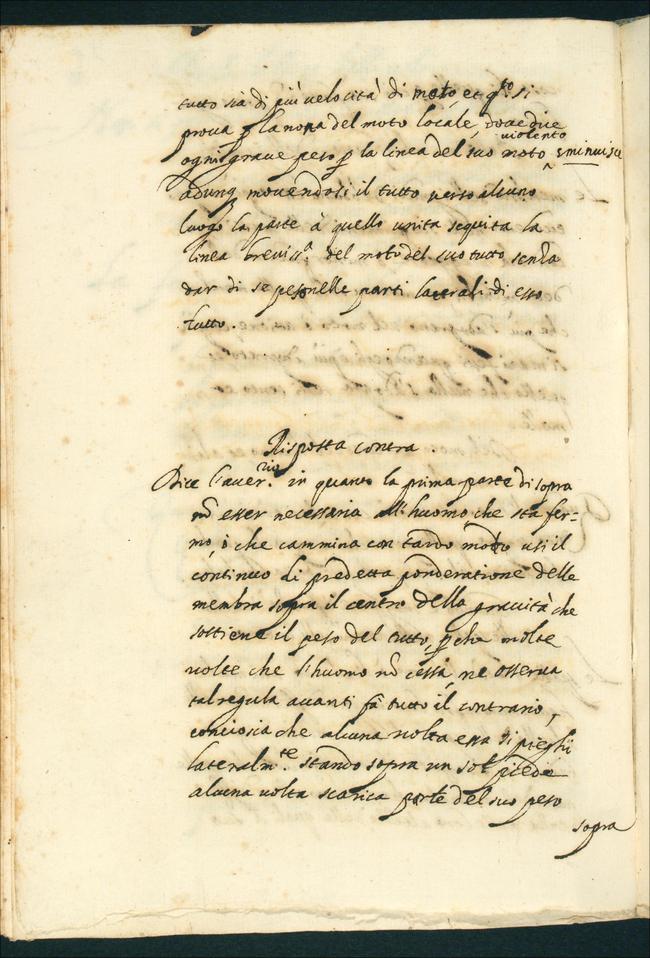 tutto sia di più velocità di moto, et q.to si
prova p la nona del moto locale, dove dice
violento
ogni grave peso p la linea del suo moto ^ sminuisce
adunq movendosi il tutto verso alcuno
luogo la parte à quello unita seguita la
linea breviss.a del moto del suo tutto senza
dar di se peso nelle parti laterali di esso
tutto.
Risposta contra.
Dice l'aver.rio in quanto la prima parte di sopra
nō esser necessaria all'huomo che sta fer=
mo, ò che cammina con tardo modo usi il
continuo di predetta ponderatione delle
membra sopra il centro della gravità che
sostiene il peso del tutto, p che molte
volte che l'huomo nō cessa, ne osserva
tal regula avanti fà tutto il contrario,
conciosia che alcuna volta essa si pieghi
lateralm.te stando sopra un sol piede
alcuna volta scarica parte del suo peso
sopra